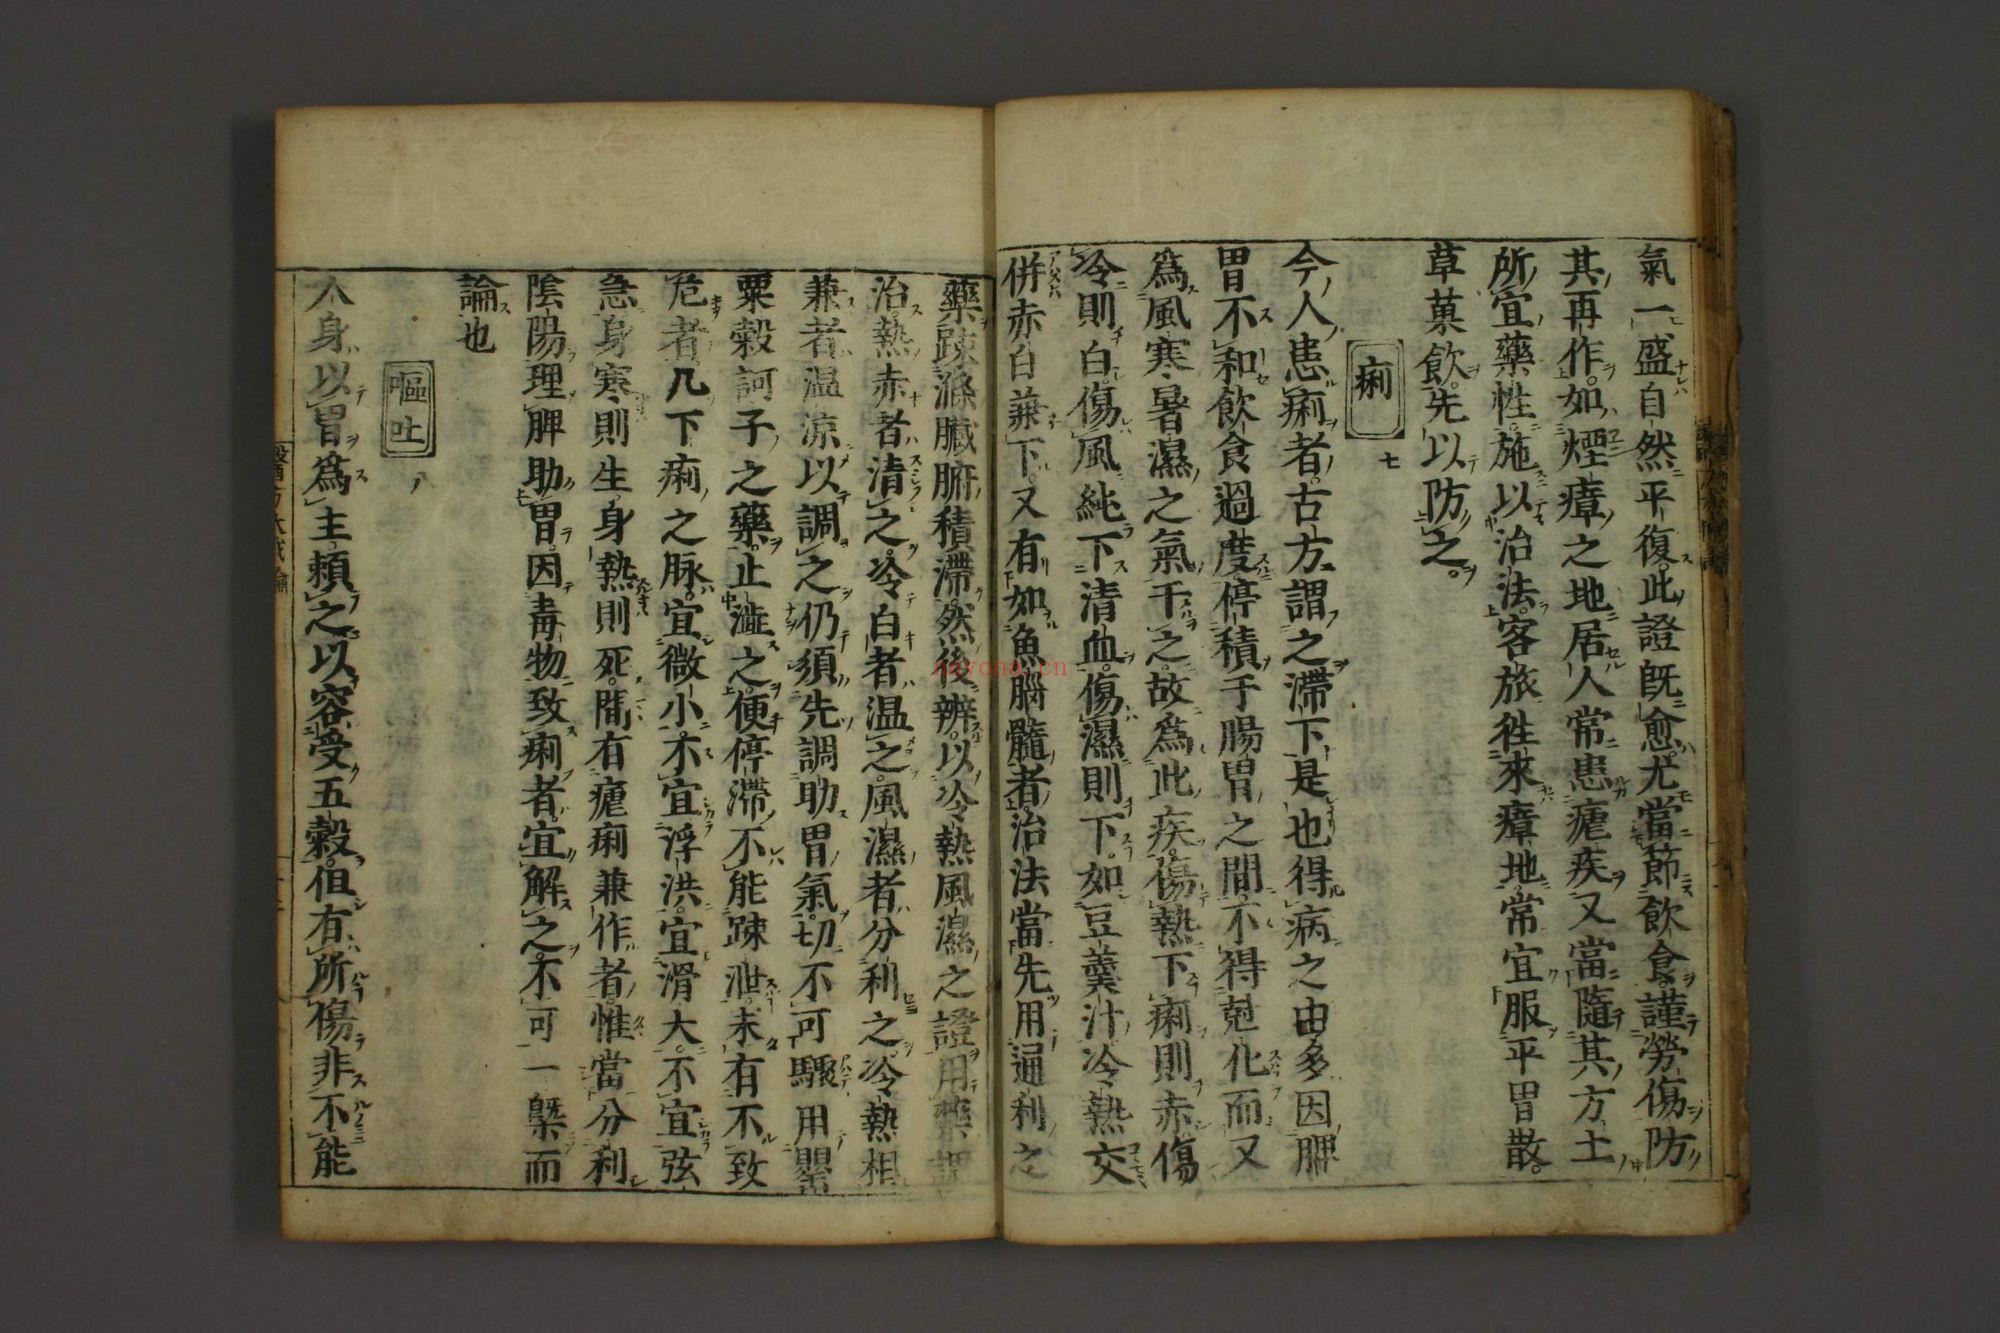 氣一盛自然平復此證既愈尤當節飲食謹勞傷防
其再作如煙瘴之地居人常患瘧疾又當隨其方土
所宜藥性施以治法客旅往來瘴地常宜服平胃散
草菓飲先以防之
痢 七
今人患痢者古方謂之滯下是也得病之由多因脾
胃不和飲食過度停積于腸胃之間不得尅化而又
爲風寒暑濕之氣干之故爲此疾傷熱下痢則赤傷
冷則白傷風純下清血傷濕則下如豆羹汁冷熱交
併赤白兼下又有如魚腦髓者治法當先用通利之
藥疎滌臟腑積滯然後辨以冷熱風濕之證用藥調
治熱赤者清之冷白者温之風濕者分利之冷熱相
兼者温涼以調之仍須先調助胃氣切不可驟用罌
粟穀訶子之藥止澁之便停滯不能疎泄未有不致
危者凡下痢之脉宜微小不宜浮洪宜滑大不宜弦
急身寒則生身熱則死間有瘧痢兼作者惟當分利
陰陽理脾助胃因毒物致痢者宜解之不可一槩而
論也
嘔吐 八
人身以胃爲主頼之以容受五穀但有所傷非不能
nayona.cn